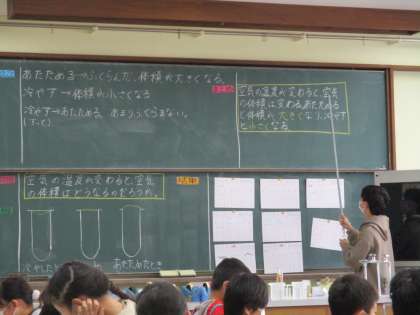 あたためる→ふくらんだ、体積が大きくなる。
冷やす→体積が小さくなる
冷やす→あたためる、あまりふくらまない。
空気の温度が変わると、空気
の体積は変わる。あたためる
と体積が大きくなり、冷やす
と小さくなる。
空気の温度が変わると、空気
の体積はどうなるのだろうか。
冷やした
あたためたとき